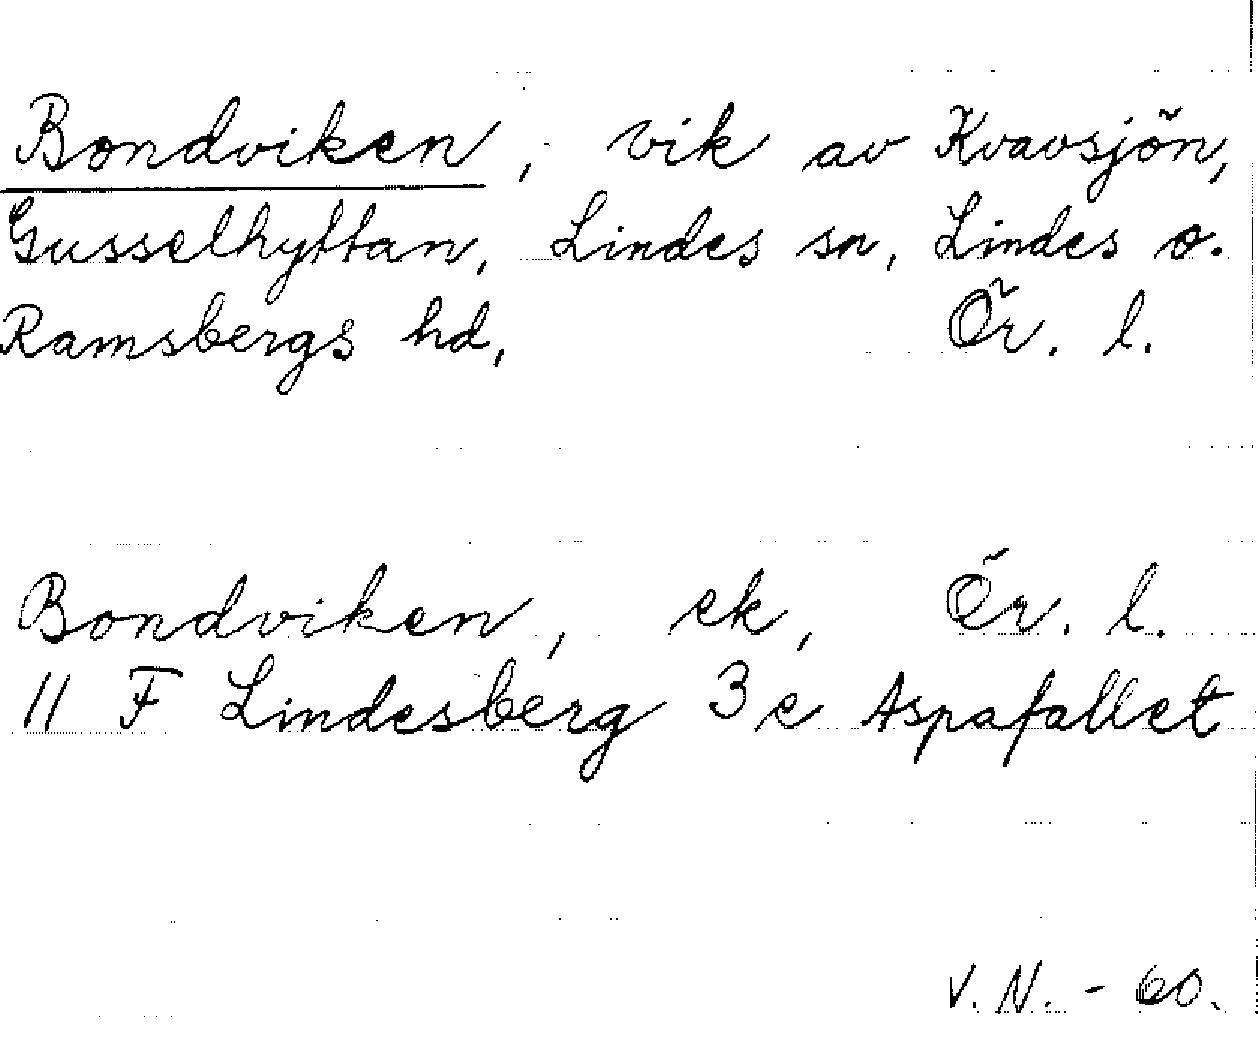 Bondviken, vik av Kvavsjön,
Gusselhyttan, Lindes sn, Lindes o.
Ramsbergs hd, Ör. l.
Bondviken, ek, Ör. l.
11 F Lindesberg 3 e Aspafallet
V. N. - 60.